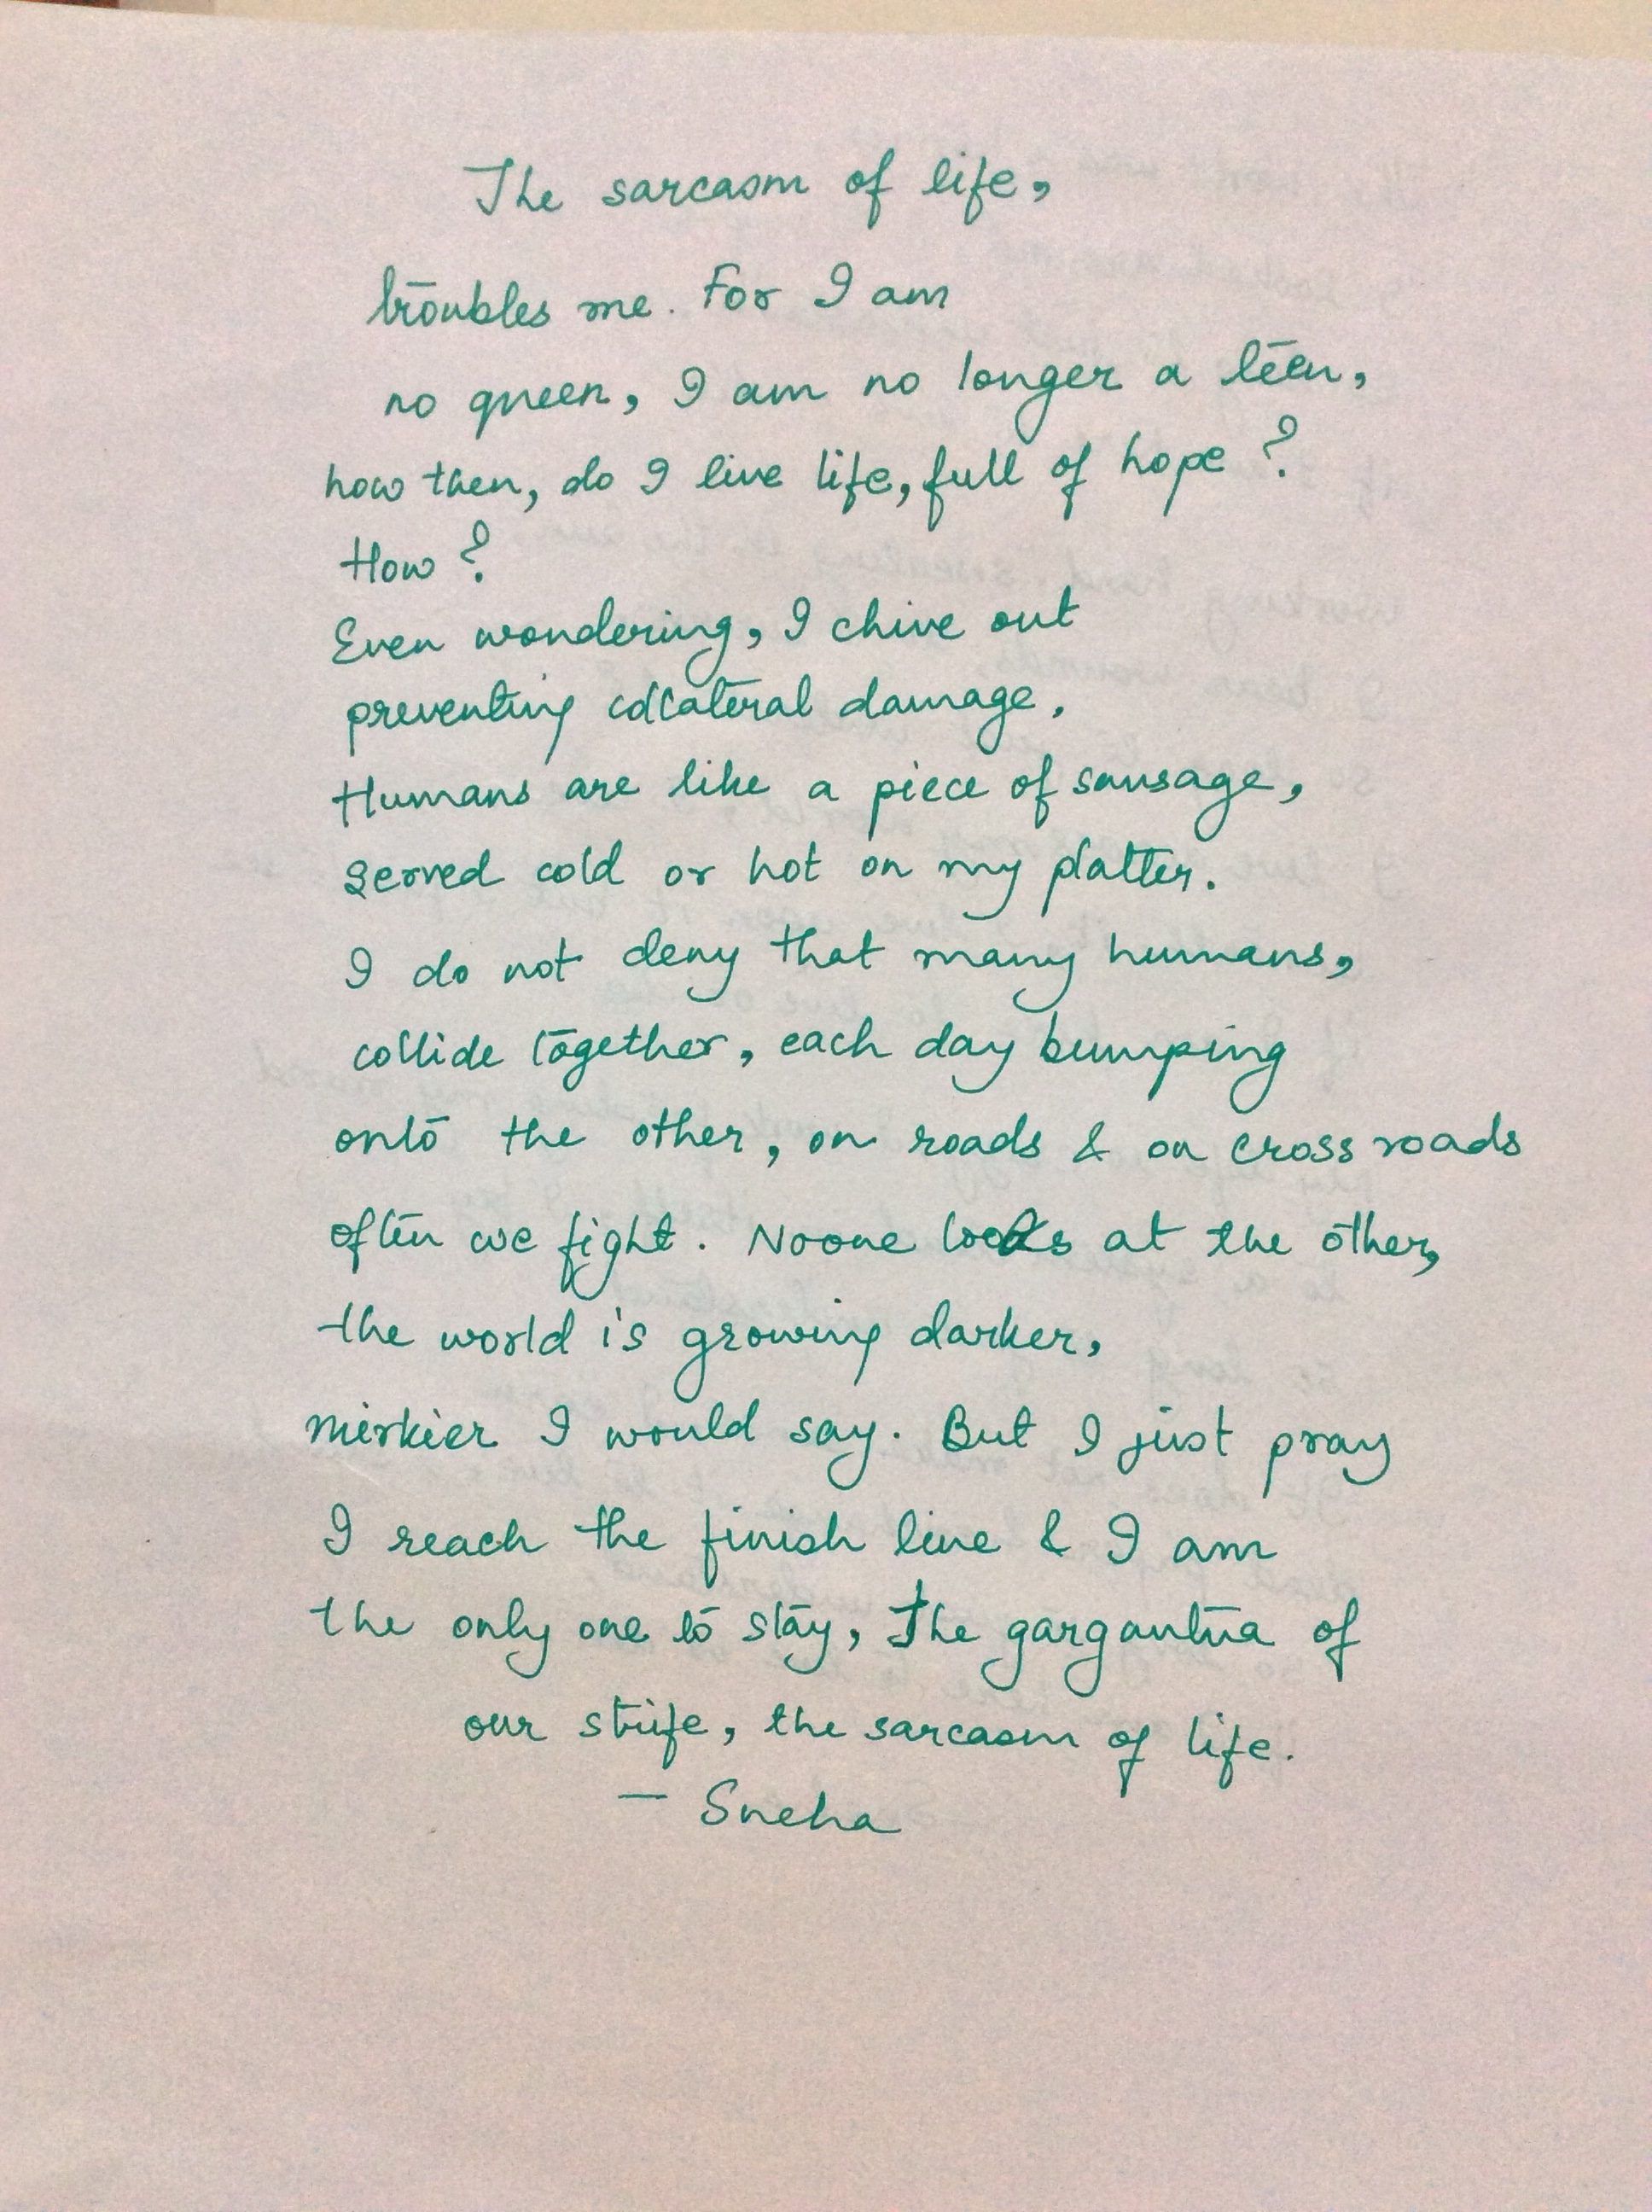 The sarcasm of life,
troubles me. For I am
no queen, I am no longer a teen,
how then, do I live life, full of hope ?
How ?
Even wondering, I chive out
preventing collateral damage.
Humans are like a piece of sausage,
served cold or hot on my platter.
I do not deny that many humans,
collide together, each day bumping
onto the other, on roads & on cross roads
often we fight. Noone looks at the other,
the world is growing darker,
mirkier I would say. But I just pray
I reach the finish line & I am
the only one to stay, The gargantua of
our strife, the sarcasm of life.
— Sneha